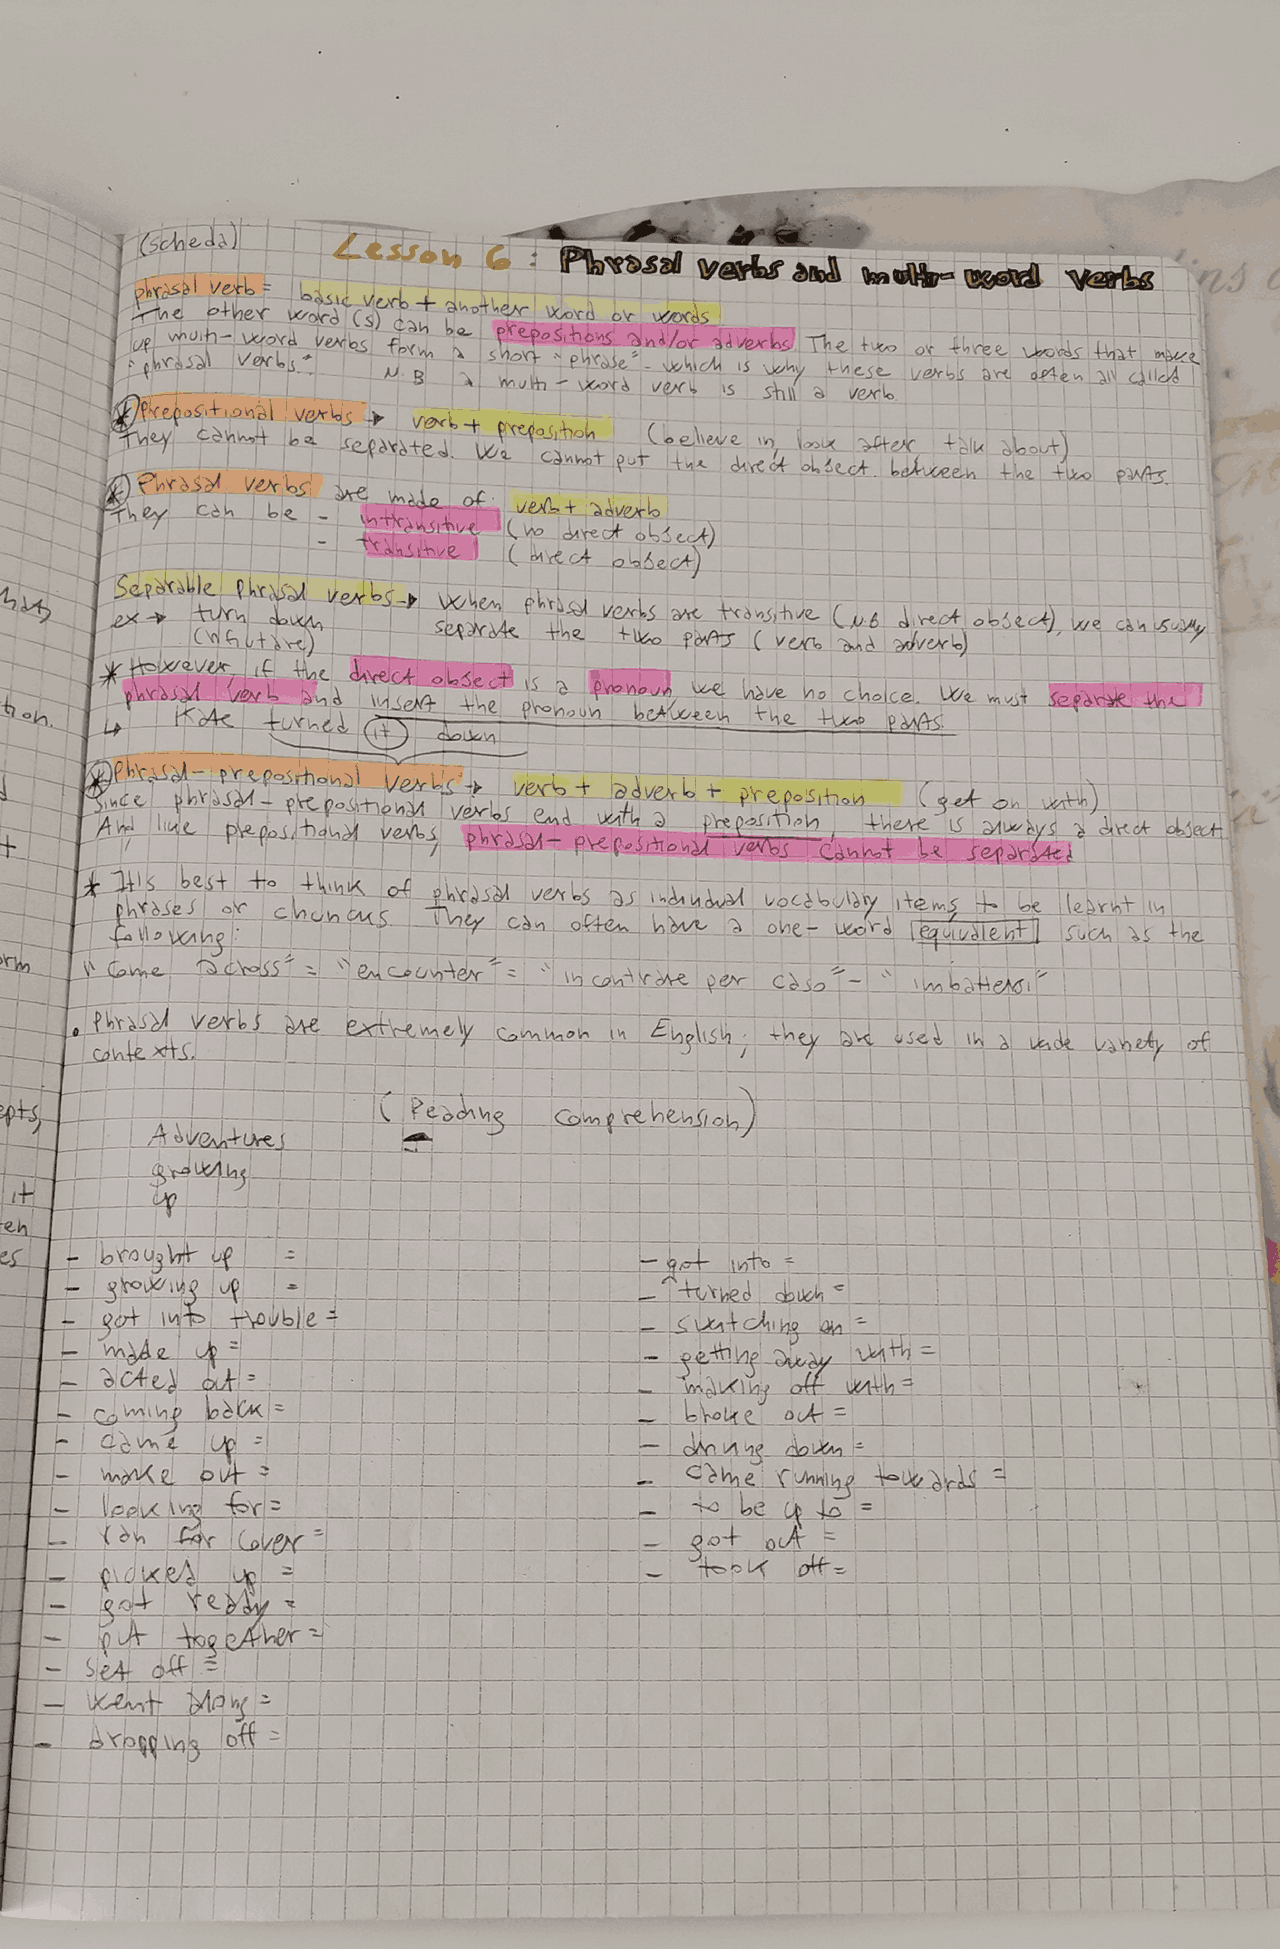 (scheda)
Lesson 6: Phrasal verbs and multi-word verbs
phrasal verb = basic verb + another word or words
The other word(s) can be prepositions and/or adverbs. The two or three words that make
up multi-word verbs form a short "phrase" - which is why these verbs are often all called
"phrasal verbs". N.B a multi-word verb is still a verb
* Prepositional verbs → verb + preposition (believe in, look after, talk about)
They cannot be separated. We cannot put the direct object between the two parts.
* Phrasal verbs are made of: verb + adverb
They can be - intransitive (no direct object)
- transitive (direct object)
Separable phrasal verbs → When phrasal verbs are transitive (N.B direct object), we can usually
ex → turn down separate the two parts (verb and adverb)
(rifiutare)
* However, if the direct object is a pronoun, we have no choice. We must separate the
phrasal verb and insert the pronoun between the two parts.
↳ Kate turned it down
* Phrasal-prepositional verbs → verb + adverb + preposition (get on with)
Since phrasal-prepositional verbs end with a preposition, there is always a direct object
And like prepositional verbs, phrasal-prepositional verbs cannot be separated
* It is best to think of phrasal verbs as individual vocabulary items, to be learnt in
phrases or chuncks. They can often have a one-word equivalent such as the
following:
"Come across" = "encounter" = "incontrare per caso" - "imbattersi"
• Phrasal verbs are extremely common in English; they are used in a wide variety of
contexts.
(Reading comprehension)
Adventures
growing
up
- brought up =
- growing up =
- got into trouble =
- made up =
- acted out =
- coming back =
- came up =
- make out =
- looking for =
- ran for cover =
- picked up =
- got ready =
- put together =
- set off =
- went along =
- dropping off =
- got into =
- turned down =
- switching on =
- getting away with =
- making off with =
- broke out =
- driving down =
- came running towards =
- to be up to =
- got out =
- took off =